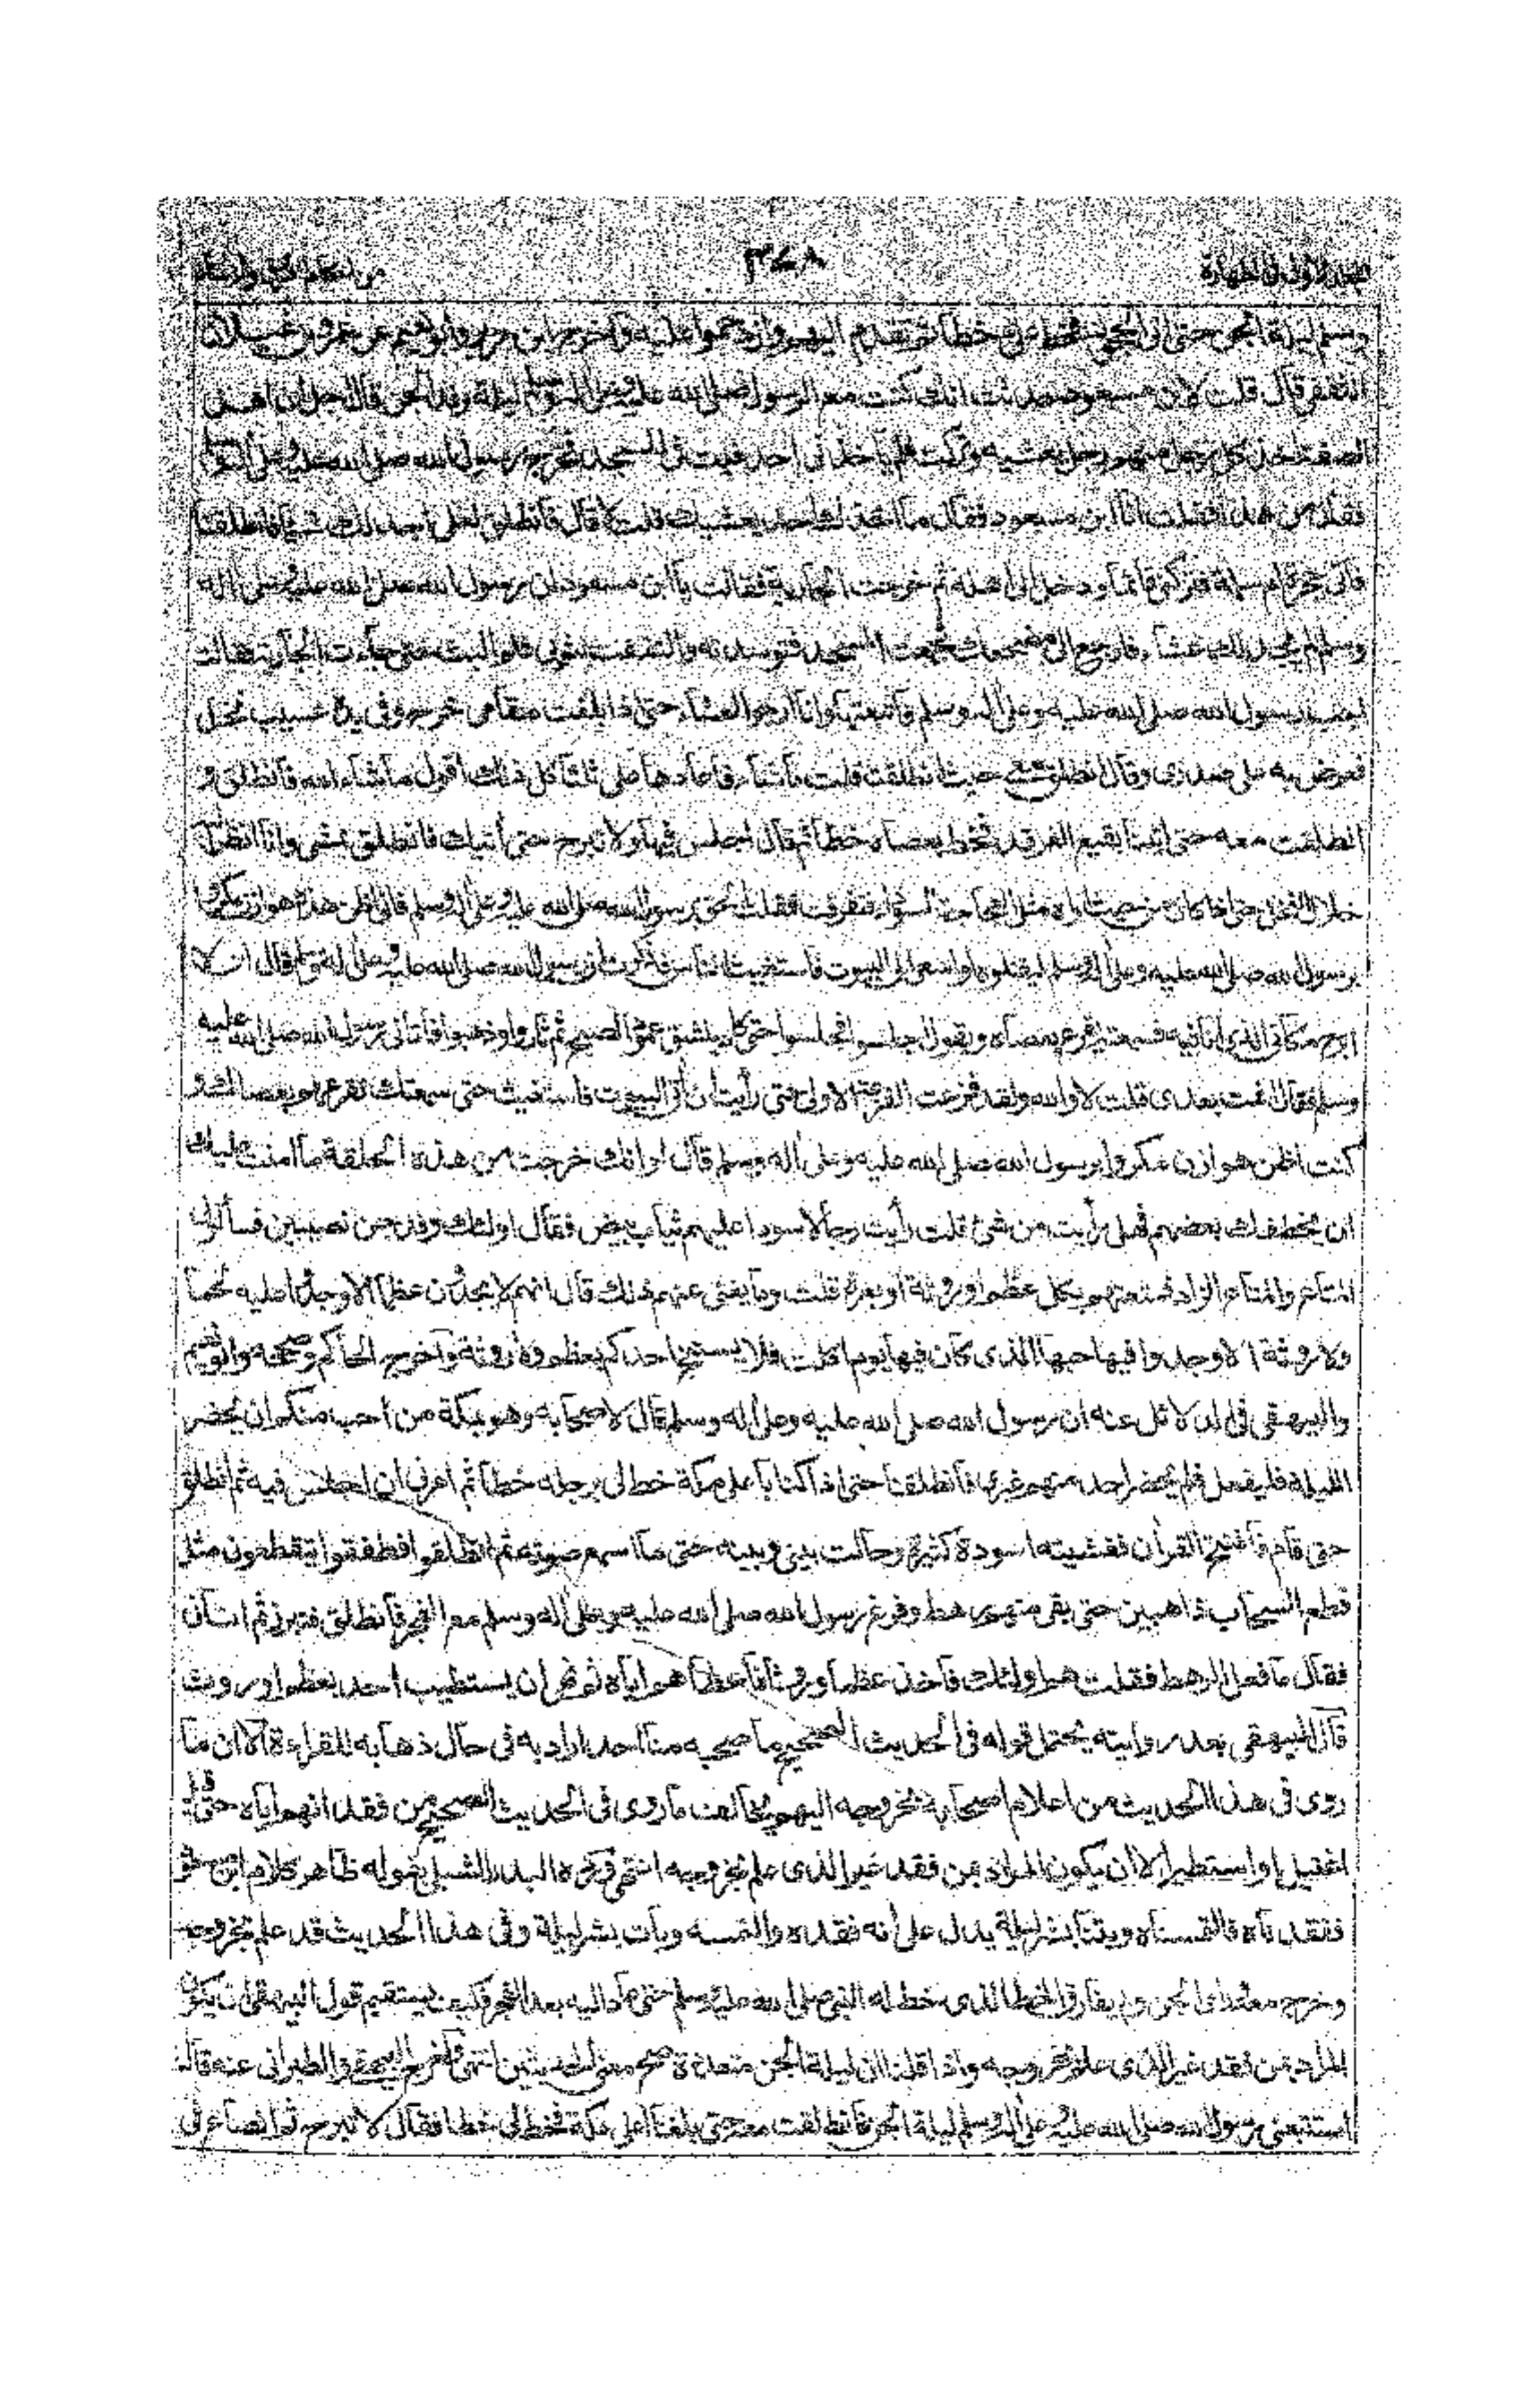 المجلد الأول في الطهارة ٣٤٨
وسلم ليلة الجن حتى اتى الحجون فخط لي خطا ثم تقدم اليهم فازدحموا عليه وأخرج ابن جرير وأبو نعيم عن عمرو بن غيلان
الثقفي قال قلت لابن مسعود حدثت انك كنت مع الرسول صلى الله عليه وعلى اله وسلم ليلة وفد الجن قال اجل ان اهل
الصفة اخذ كل رجل منهم رجل يعشيه وتركت فلم يأخذني احد فبيت في المسجد فخرج رسول الله صلى الله عليه وعلى اله وسلم
فقال من هذا فقلت انا ابن مسعود فقال ما اخذك احد يعشيك قلت لا قال فانطلق لعلي اجد لك شيئا فانطلقنا
فاتى حجرة ام سلمة فتركني قائما ودخل الى اهله ثم خرجت الجارية فقالت يا ابن مسعود ان رسول الله صلى الله عليه وعلى اله
وسلم لم يجد لك عشاء فارجع الى مضجعك فرجعت المسجد فتوسدته والتففت بثوبي فلم البث حتى جاءت الجارية فقالت
اجب رسول الله صلى الله عليه وعلى اله وسلم وأتبعتها وانا ارجو العشاء حتى اذا بلغت مقامي خرج وفي يده عسيب نخل
فعرض به على صدري وقال انطلق معي حيث انطلقت قلت ما شاء فأعادها علي ثلثا كل ذلك أقول ما شاء الله فانطلق و
انطلقت معه حتى اتينا بقيع الغرقد فخط بعصاه خطا ثم قال اجلس فيها ولا تبرح حتى أتيك فانطلق يمشي وانا انظر
خلال النخل حتى اذا كان من حيث اراه مثل العجاجة السوداء ففرقت فقلت الحق برسول الله صلى الله عليه وعلى اله وسلم فاني اظن هذه هوازن مكروا
برسول الله صلى الله عليه وعلى اله وسلم ليقتلوه او اسعى الى البيوت فاستغيث الناس فذكرت ان رسول الله صلى الله عليه وعلى اله وسلم قال ان لا
ابرح مكاني الذي انا فيه فسمعته يقرعهم بعصاه ويقول اجلسوا فجلسوا حتى كاد ينشق عمود الصبح ثم ثاروا وذهبوا فأتاني رسول الله صلى الله عليه
وسلم فقال انمت بعدي قلت لا والله ولقد فزعت الفزعة الاولى حتى رأيت ان أتي البيوت فاستغيث حتى سمعتك تقرعهم بعصاك و
كنت اظن هوازن مكروا برسول الله صلى الله عليه وعلى اله وسلم قال لو انك خرجت من هذه الحلقة ما امنت عليك
ان يخطفك بعضهم فهل رأيت من شئ قلت رأيت رجالا سودا عليهم ثياب بيض فقال اولئك وفد جن نصيبين فسألوني
المتاع والمتاع الزاد فمتعتهم بكل عظم او روثة أو بعرة قلت وما يغني عنهم ذلك قال انهم لا يجدون عظما الا وجدوا عليه لحما
ولا روثة الا وجدوا فيها حبها الذي كان فيها يوم اكلت فلا يستنج احدكم بعظم ولا روثة وأخرج الحاكم وصححه وابو نعيم
والبيهقي في الدلائل عنه ان رسول الله صلى الله عليه وعلى اله وسلم قال لاصحابه وهو بمكة من احب منكم ان يحضر
الليلة فليفعل فلم يحضر احد منهم غيري فانطلقنا حتى اذا كنا بأعلى مكة خط لي برجله خطا ثم امرني ان اجلس فيه ثم انطلق
حتى قام فأفتتح القرأن فغشيته اسودة كثيرة وحالت بيني وبينه حتى ما اسمع صوته ثم انطلقوا فطفقوا يتقطعون مثل
قطع السحاب ذاهبين حتى بقي منهم رهط وفرغ رسول الله صلى الله عليه وعلى اله وسلم مع الفجر فأنطلق فتبرز ثم اتاني
فقال ما فعل الرهط فقلت هم اولئك فأخذ عظما وروثا فأعطاهم اياه ثم نهى ان يستطيب احد بعظم او روث
قال البيهقي بعد روايته يحتمل قوله في الحديث الصحيح ما صحبه منا احد اراد به في حال ذهابه للقراءة الا ان ما
روى في هذا الحديث من اعلام اصحابه بخروجه اليهم يخالف ما روى في الحديث الصحيح من فقدانهم اياه حتى قيل
اغتيل او استطير الا ان يكون المراد من فقد غير الذي علم بخروجه انتهى وذكره البدر الشبلي بقوله ظاهر كلام ابن مسعود
ففقدناه فالتمسناه وبتنا بشر ليلة يدل على أنه فقده والتمسه وبات بشر ليلة وفي هذا الحديث قد علم بخروجه
وخرج معه ورأى الجن ولم يفارق الخط الذي خط له النبي صلى الله عليه وسلم حتى عاد اليه بعد الفجر فكيف يستقيم قول البيهقي ان يكون
المراد من فقد غير الذي علم بخروجه واذا قلنا ان ليلة الجن متعددة صح معنى الحديثين انتهى وأخرج البيهقي والطبراني عنه قال
استتبعني رسول الله صلى الله عليه وعلى اله وسلم ليلة الجن فانطلقت معه حتى بلغنا اعلى مكة فخط لي خطا فقال لا تبرح ثم انصاع في